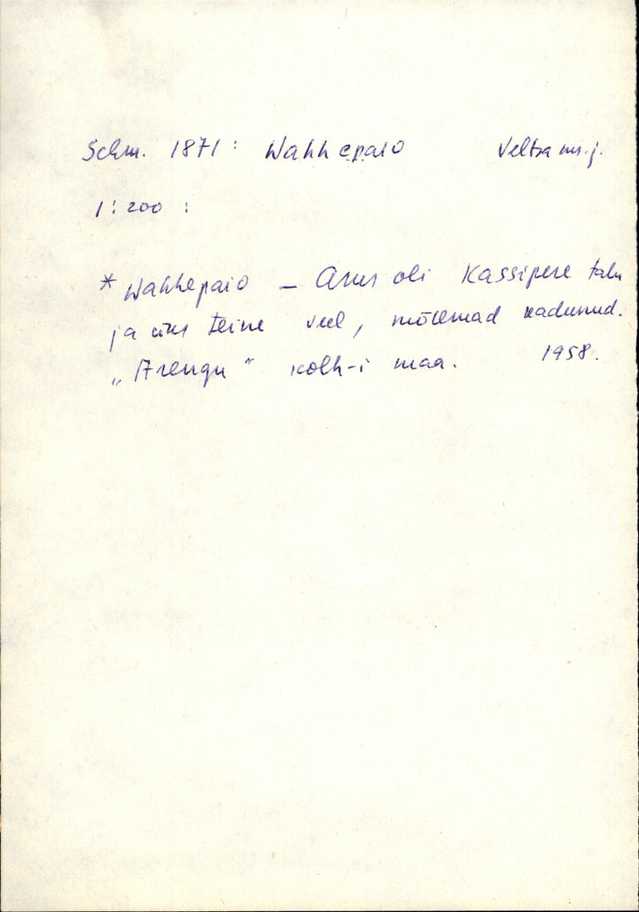 Schm. 1871: Wahhepaio Veltsa ms. j.
1:200 :
* Wahhepaio – Asus oli Kassipere talu
ja üks teine veel, mõlemad kadunud.
„Arengu" kolh-i maa. 1958.